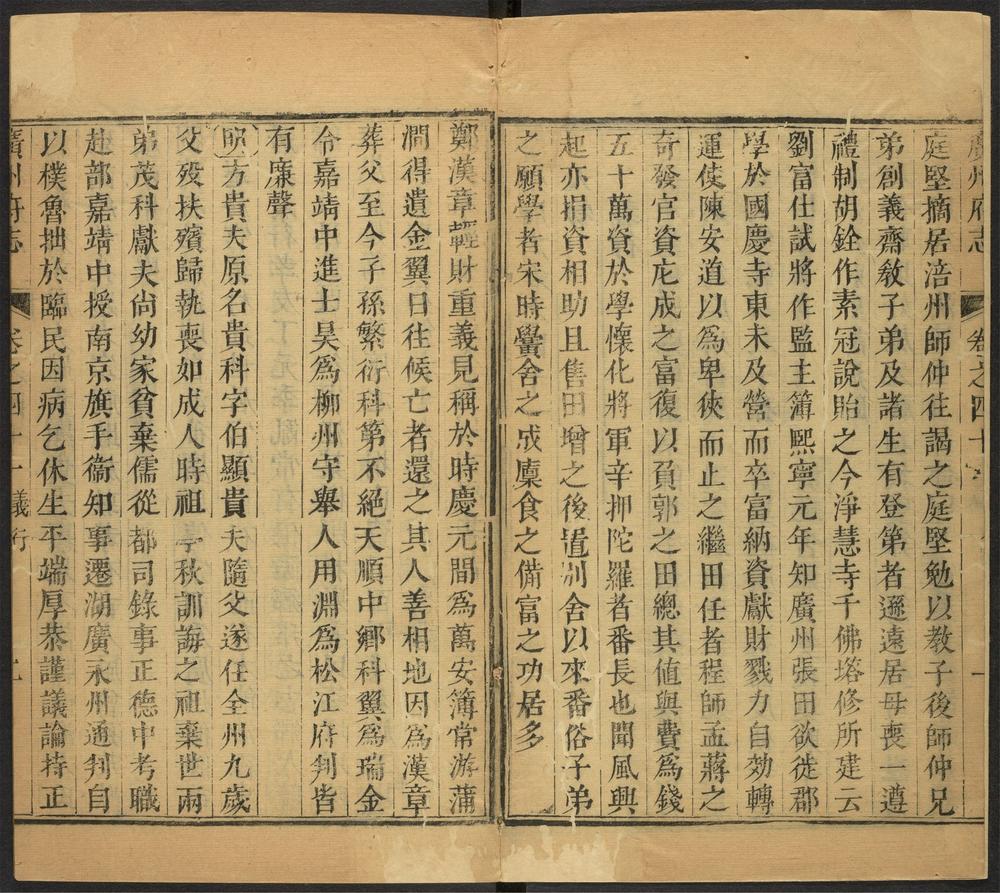 廣州府志 卷之四十 一
庭堅摘居涪州師仲往謁之庭堅勉以教子後師仲兄
弟創義齋敎子弟及諸生有登第者遜遠居母喪一遵
禮制胡銓作素冠說貽之今淨慧寺千佛塔修所建云
劉富仕試將作監主簿熙寧元年知廣州張田欲徙郡
學於國慶寺東未及營而卒富納資獻財戮力自効轉
運使陳安道以爲卑狹而止之繼田任者程師孟蔣之
奇發官資庀成之富復以負郭之田總其值與費爲錢
五十萬資於學懷化將軍辛押陀羅者番長也聞風興
起亦捐資相助且售田增之後置别舍以來番俗子弟
之願學者宋時黌舍之成廩食之備富之功居多
鄭漢章輕財重義見稱於時慶元間爲萬安簿常游蒲
澗得遺金翼日往候亡者還之其人善相地因爲漢章
葬父至今子孫繁衍科第不絕天順中鄉科翼爲瑞金
令嘉靖中進士昊爲柳州守舉人用淵爲松江府判皆
有廉聲
明方貴夫原名貴科字伯顯貴夫隨父遂任全州九歲
父歿扶殯歸執喪如成人時祖亭秋訓誨之祖棄世兩
弟茂科獻夫尚幼家貧棄儒從都司錄事正德中考職
赴部嘉靖中授南京旗手衞知事遷湖廣永州通判自
以樸魯拙於臨民因病乞休生平端厚恭謹議論持正
廣州府志 卷之四十 義行 二